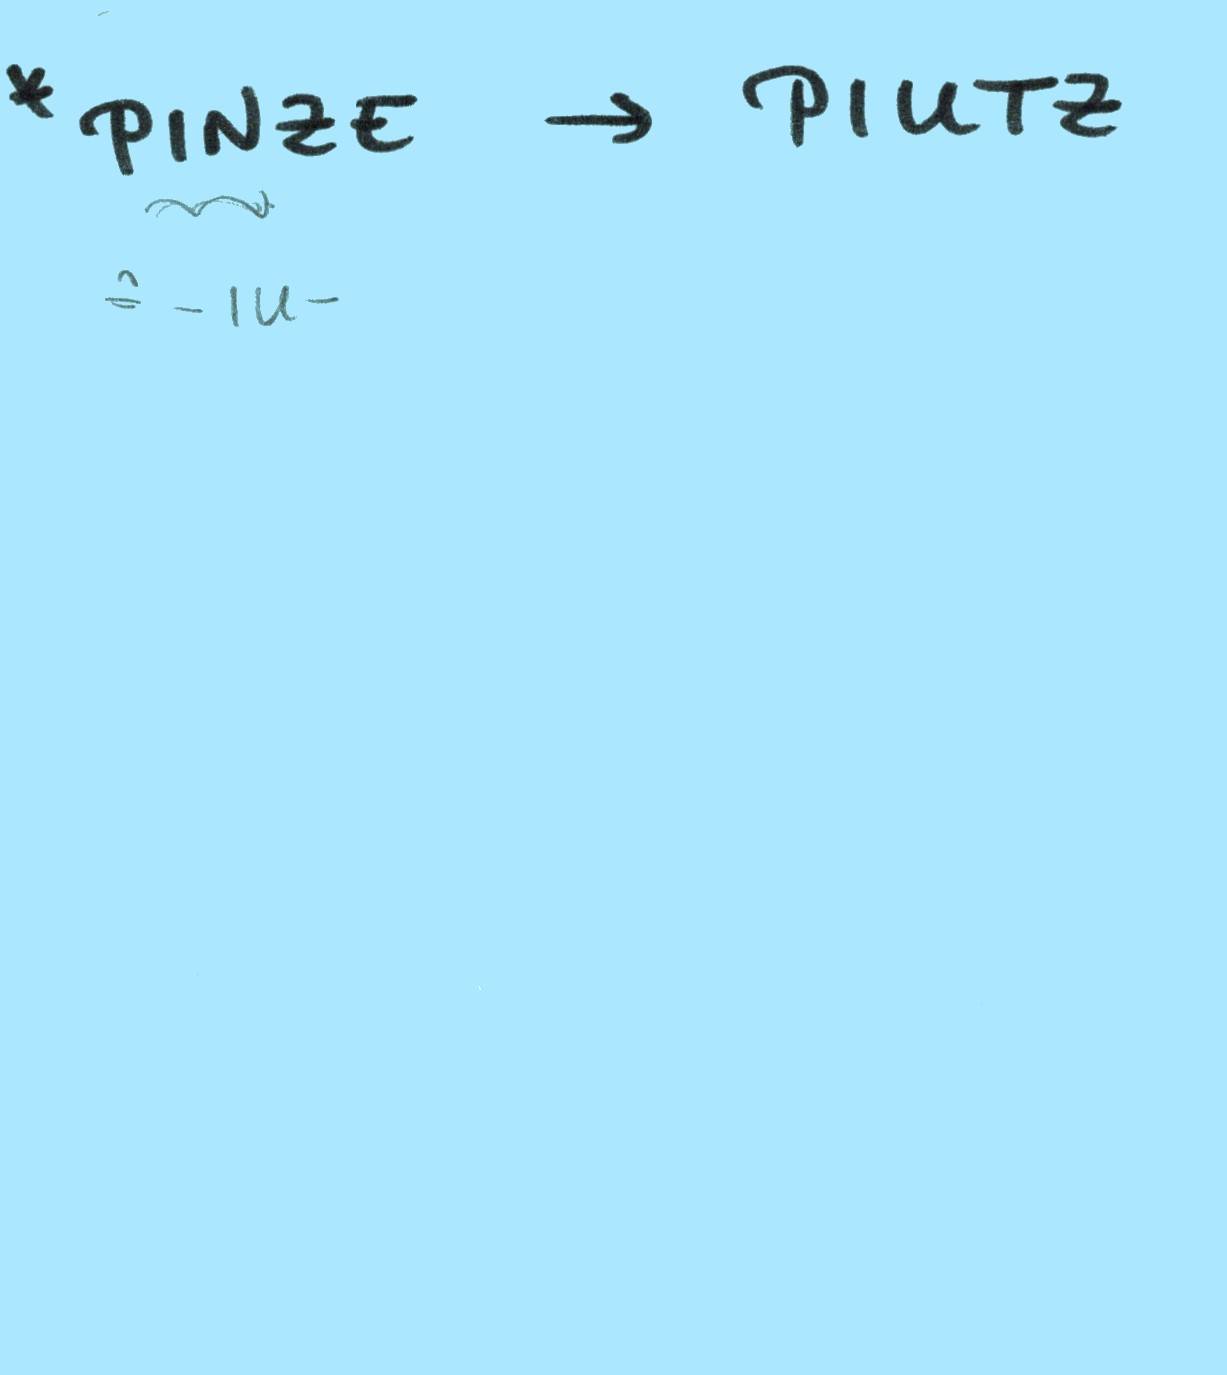 * PINZE → PIUTZ
≙ - IU -